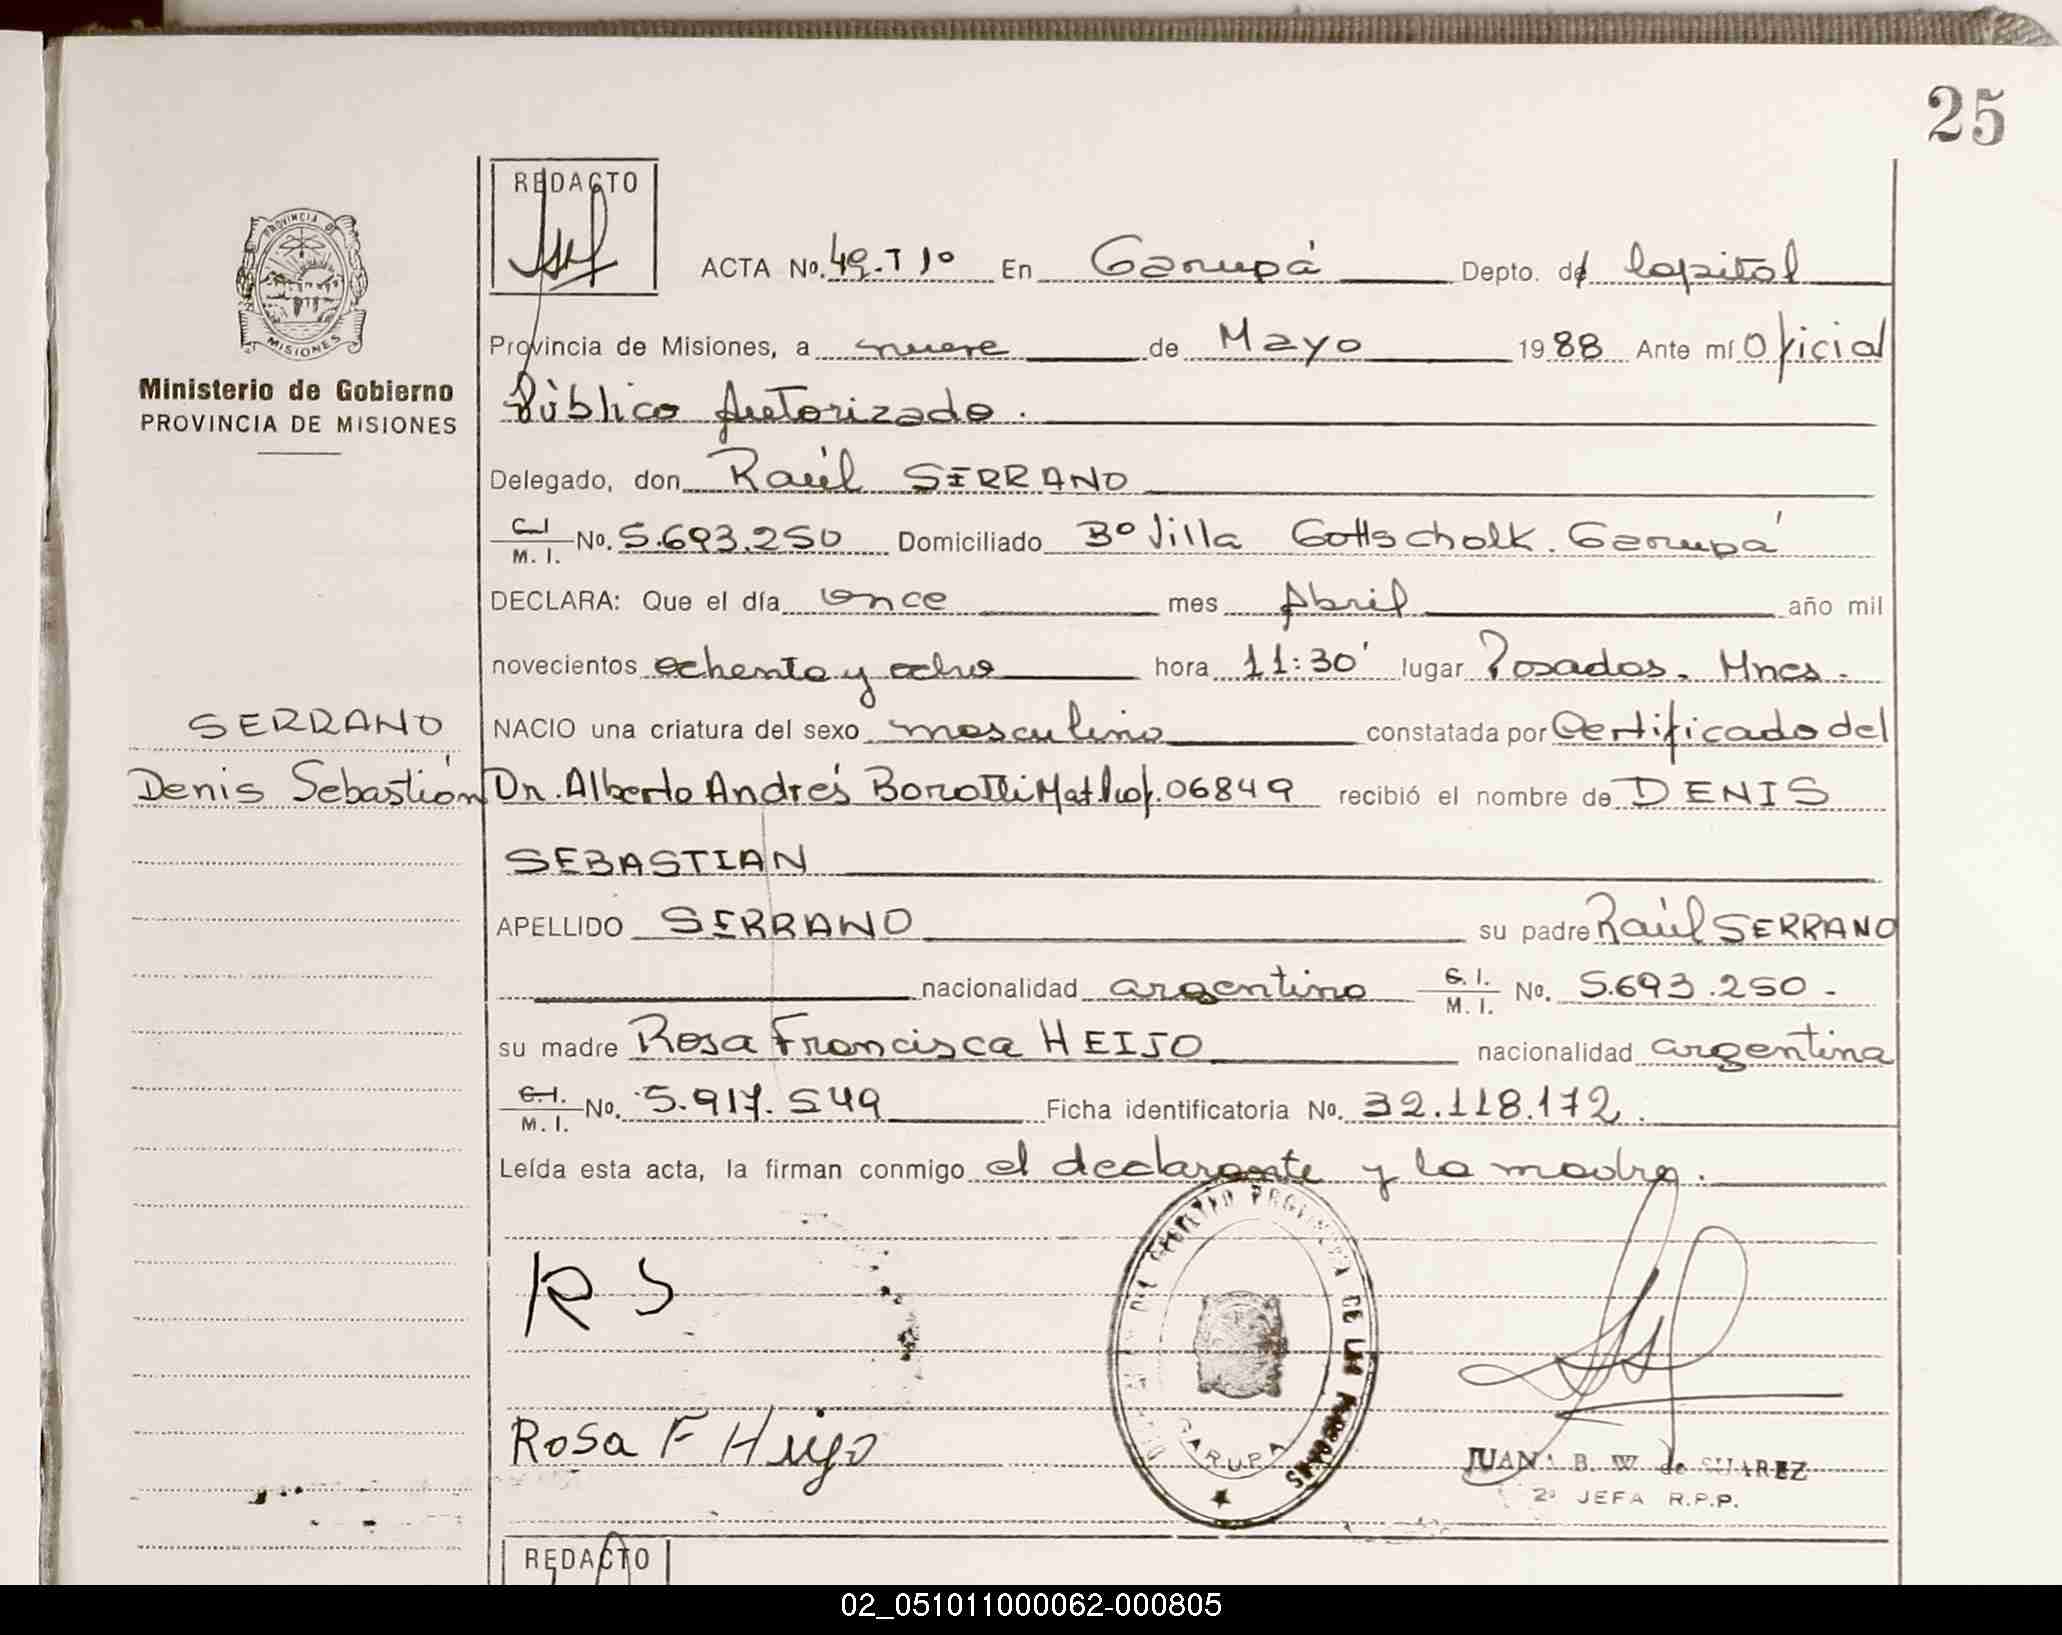 25
REDACTO
PROVINCIA DE
MISIONES
Ministerio de Gobierno
PROVINCIA DE MISIONES
ACTA No. 49.T Iº En Garupá Depto. de Capital
Provincia de Misiones, a nueve de Mayo 1988 Ante mí Oficial
Público Autorizado.
Delegado, don Raúl SERRANO
C.I. M. I. No. 5.693.250 Domiciliado Bº Villa Gottschalk. Garupá
DECLARA: Que el día once mes Abril año mil
novecientos ochenta y ocho hora 11:30' lugar Posadas. Mnes.
SERRANO
Denis Sebastián
NACIO una criatura del sexo masculino constatada por Certificado del
Dr. Alberto Andrés Borotti Mat. Prof. 06849 recibió el nombre de DENIS
SEBASTIAN
APELLIDO SERRANO su padre Raúl SERRANO
nacionalidad argentino C. I. M. I. No. 5.693.250.
su madre Rosa Francisca HEIJO nacionalidad argentina
C. I. M. I. No. 5.917.549 Ficha identificatoria No. 32.118.172.
Leída esta acta, la firman conmigo el declarante y la madre.
R S
Rosa F Hijo
DEL REGISTRO PROVINCIAL DE LAS PERSONAS
GARUPA
JUANA B. W. de SUAREZ
2ª JEFA R.P.P.
REDACTO
02_051011000062-000805